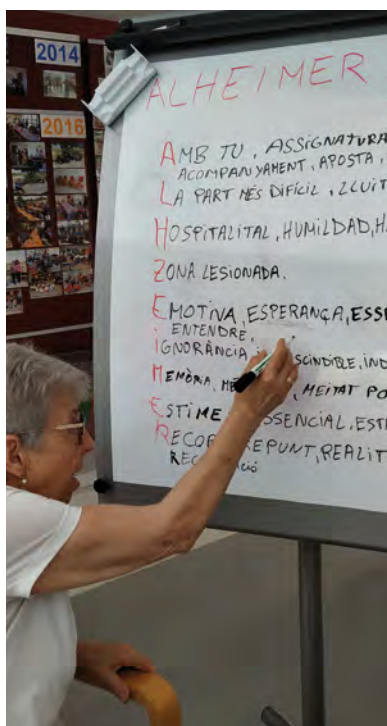 2014
2016
ALHEIMER
AMB TU, ASSIGNATURA
ACOMPANYAMENT, APOSTA,
LA PART MÉS DIFÍCIL, LLUIT
HOSPITALITAL, HUMILDAD, H
ZONA LESIONADA.
EMOTIVA, ESPERANÇA, ESSE
ENTENDRE,
iGNORÀNCIA, SCINDIBLE, IND
MEMÒRIA, MEITAT PO
ESTIME SSENCIAL, EST
RECOR REPUNT, REALIT